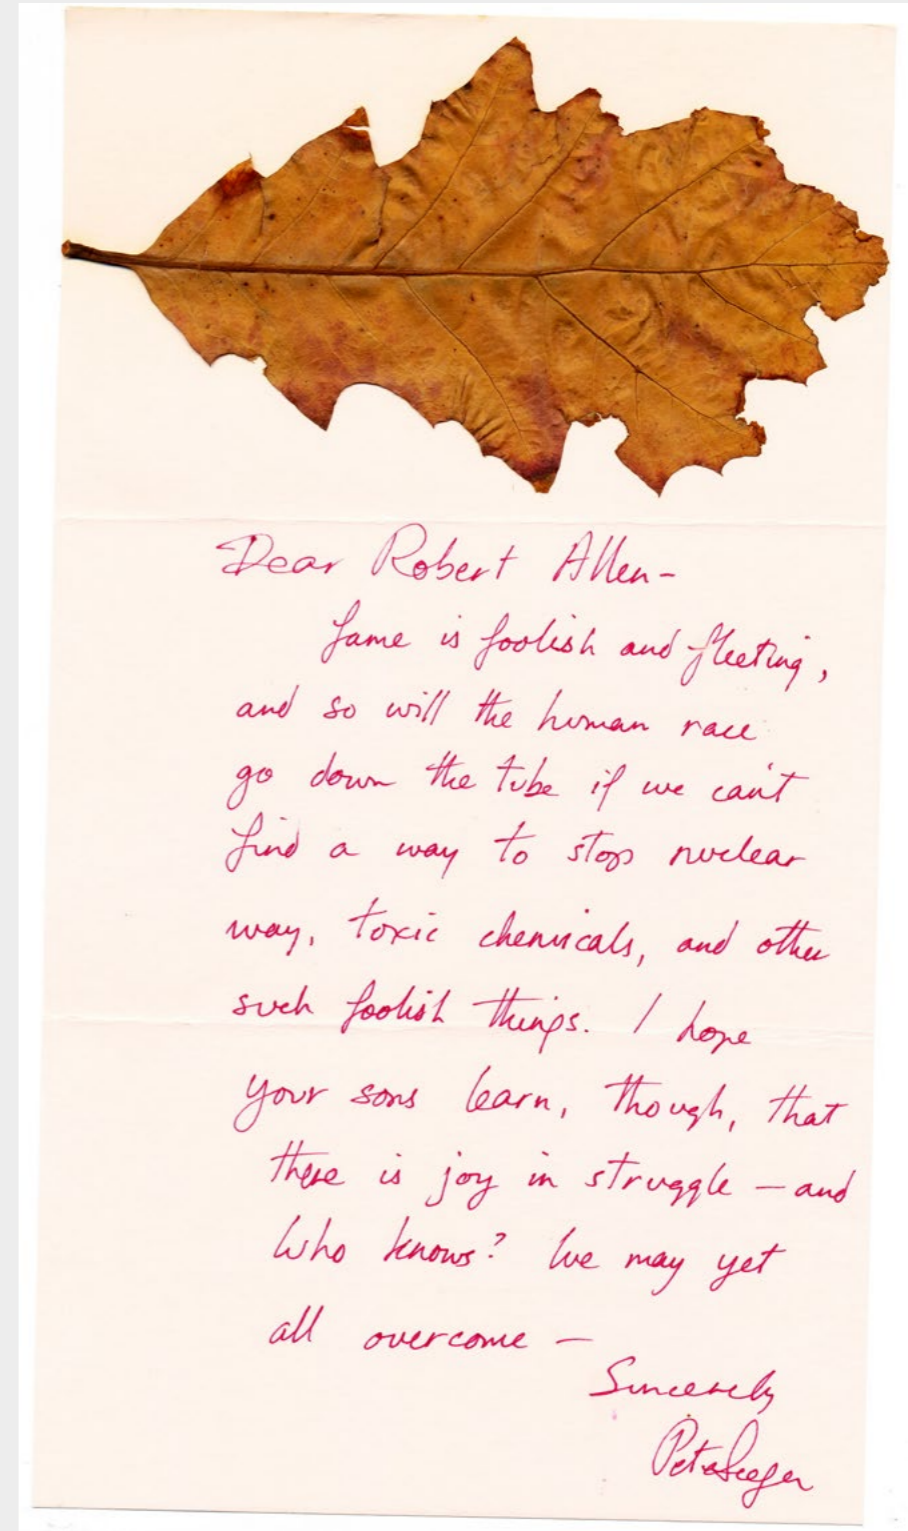 Dear Robert Allen-
Fame is foolish and fleeting,
and so will the human race
go down the tube if we can't
find a way to stop nuclear
way, toxic chemicals, and other
such foolish things. I hope
your sons learn, though, that
there is joy in struggle — and
who knows? We may yet
all overcome —
Sincerely
Pete Seeger